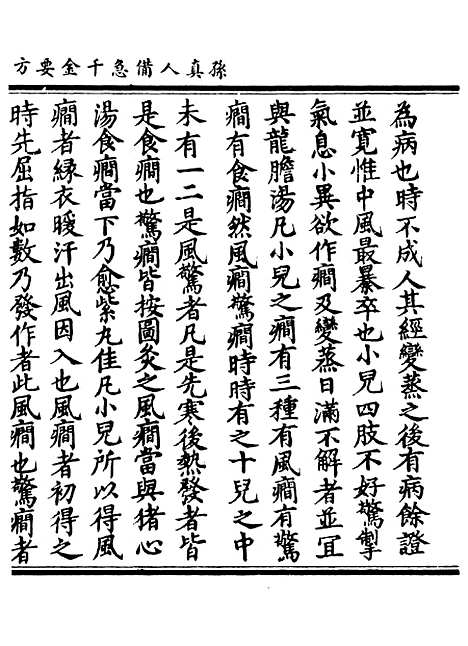 孫真人備急千金要方
為病也時不成人其經變蒸之後有病餘證
並寬惟中風最暴卒也小兒四肢不好驚掣
氣息小異欲作癇及變蒸日滿不解者並宜
與龍膽湯凡小兒之癇有三種有風癇有驚
癇有食癇然風癇驚癇時時有之十兒之中
未有一二是風驚者凡是先寒後熱發者皆
是食癇也驚癇皆按圖灸之風癇當與猪心
湯食癇當下乃愈紫丸佳凡小兒所以得風
癇者緣衣暖汗出風因入也風癇者初得之
時先屈指如數乃發作者此風癇也驚癇者